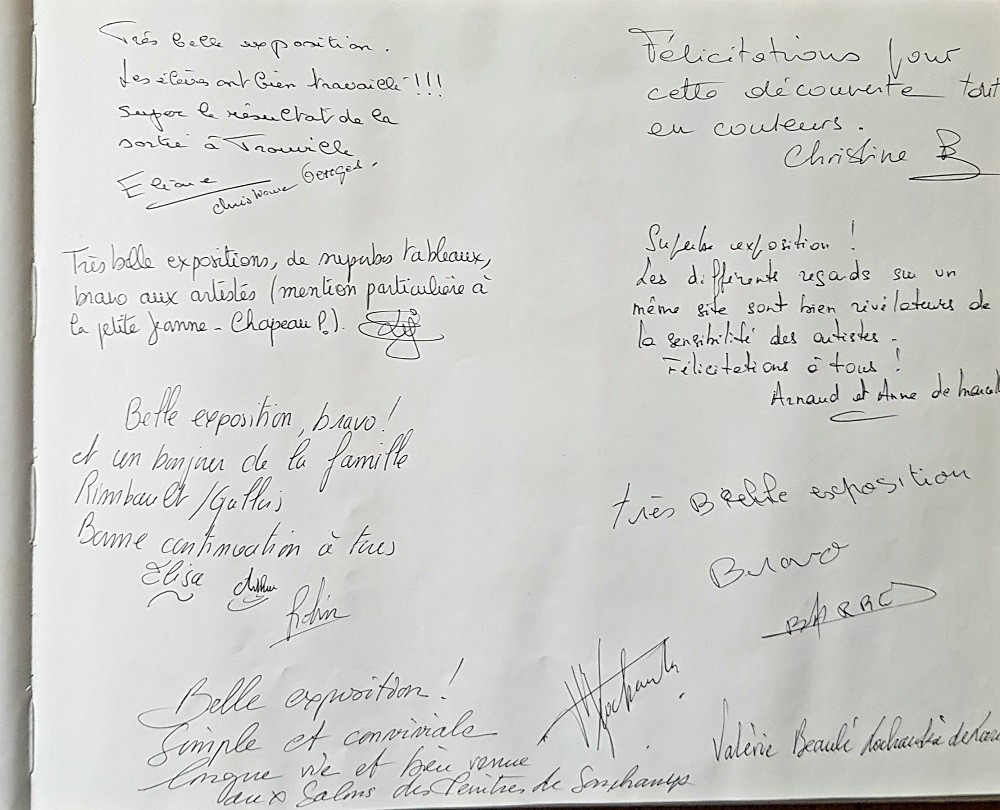 Très belle exposition.
Les élèves ont bien travaillé !!!
super le résultat de la
sortie à Trouville
Eliane
Christiane Georges.
Très belle expositions, de superbes tableaux,
bravo aux artistes (mention particulière à
la petite Jeanne - Chapeau P.).
Belle exposition, bravo!
et un bonjour de la famille
Rimbault /
Bonne continuation à tous
Elisa
Robin
Belle exposition!
Simple et conviviale
longue vie et bien venue
aux Salons des Peintres de Sonchamps
Félicitations pour
cette découverte tout
en couleurs.
Christine B
Superbe exposition !
Les différents regards sur un
même site sont bien révélateurs de
la sensibilité des artistes.
Félicitations à tous !
Arnaud et Anne de
très Belle exposition
Bravo
BARRE
Valérie Beaulé